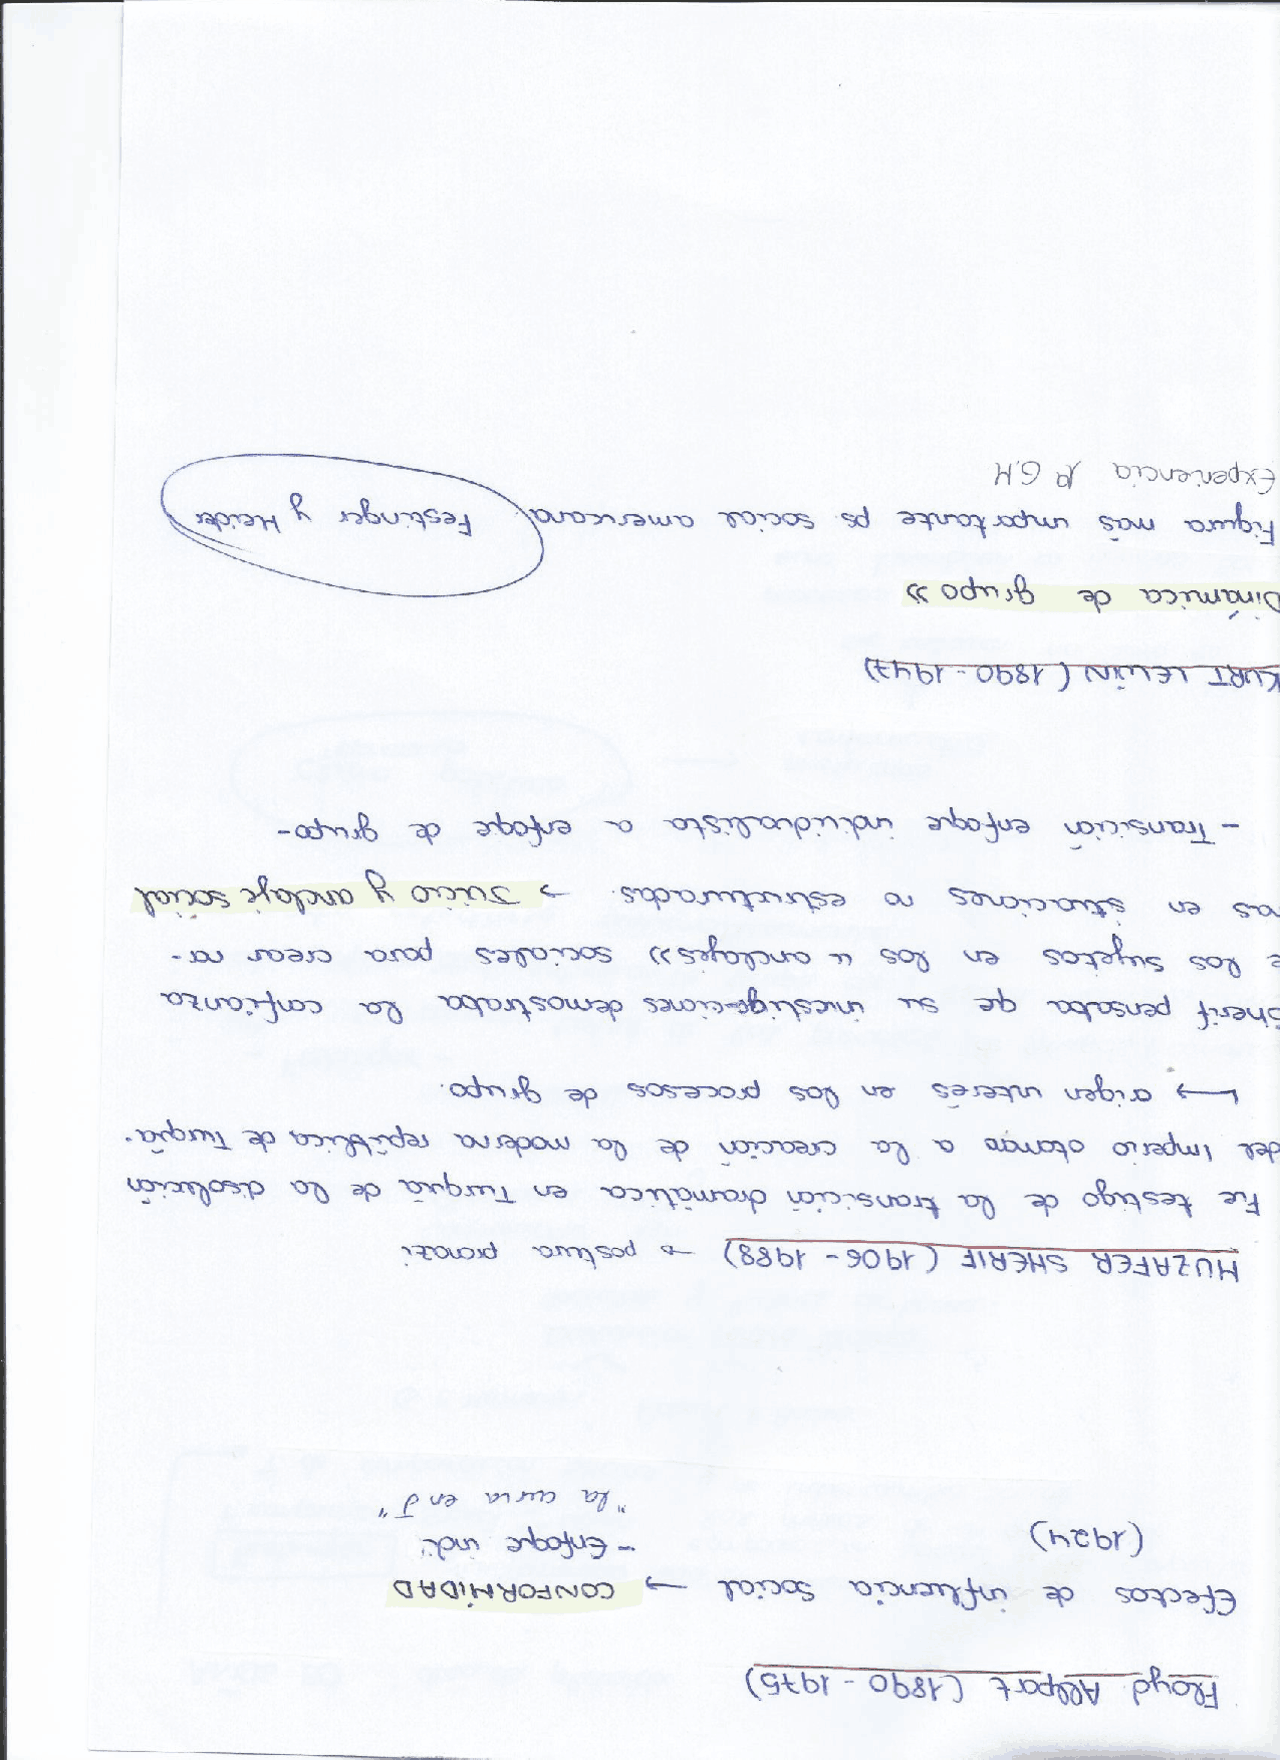 Floyd Allport (1890 - 1975)
Efectos de influencia social → CONFORMIDAD
(1924)
- Enfoque indi.
"la curva en J"
MUZAFER SHERIF (1906 - 1988) → postura pronazi
Fue testigo de la transición dramática en Turquía de la disolución
del Imperio otomano a la creación de la moderna república de Turquía.
↳ origen interés en los procesos de grupo.
Sherif pensaba qe su investigaciones demostraba la confianza
e los sujetos en los "anclajes» sociales para crear nor-
mas en situaciones no estructuradas. → Juicio y anclaje social
- Transición enfoque individualista a enfoque de grupo-
KURT LEWIN (1890 - 1947)
Dinámica de grupo»
Figura más importante ps social americana. Festinger y Heider
Experiencia p G.M